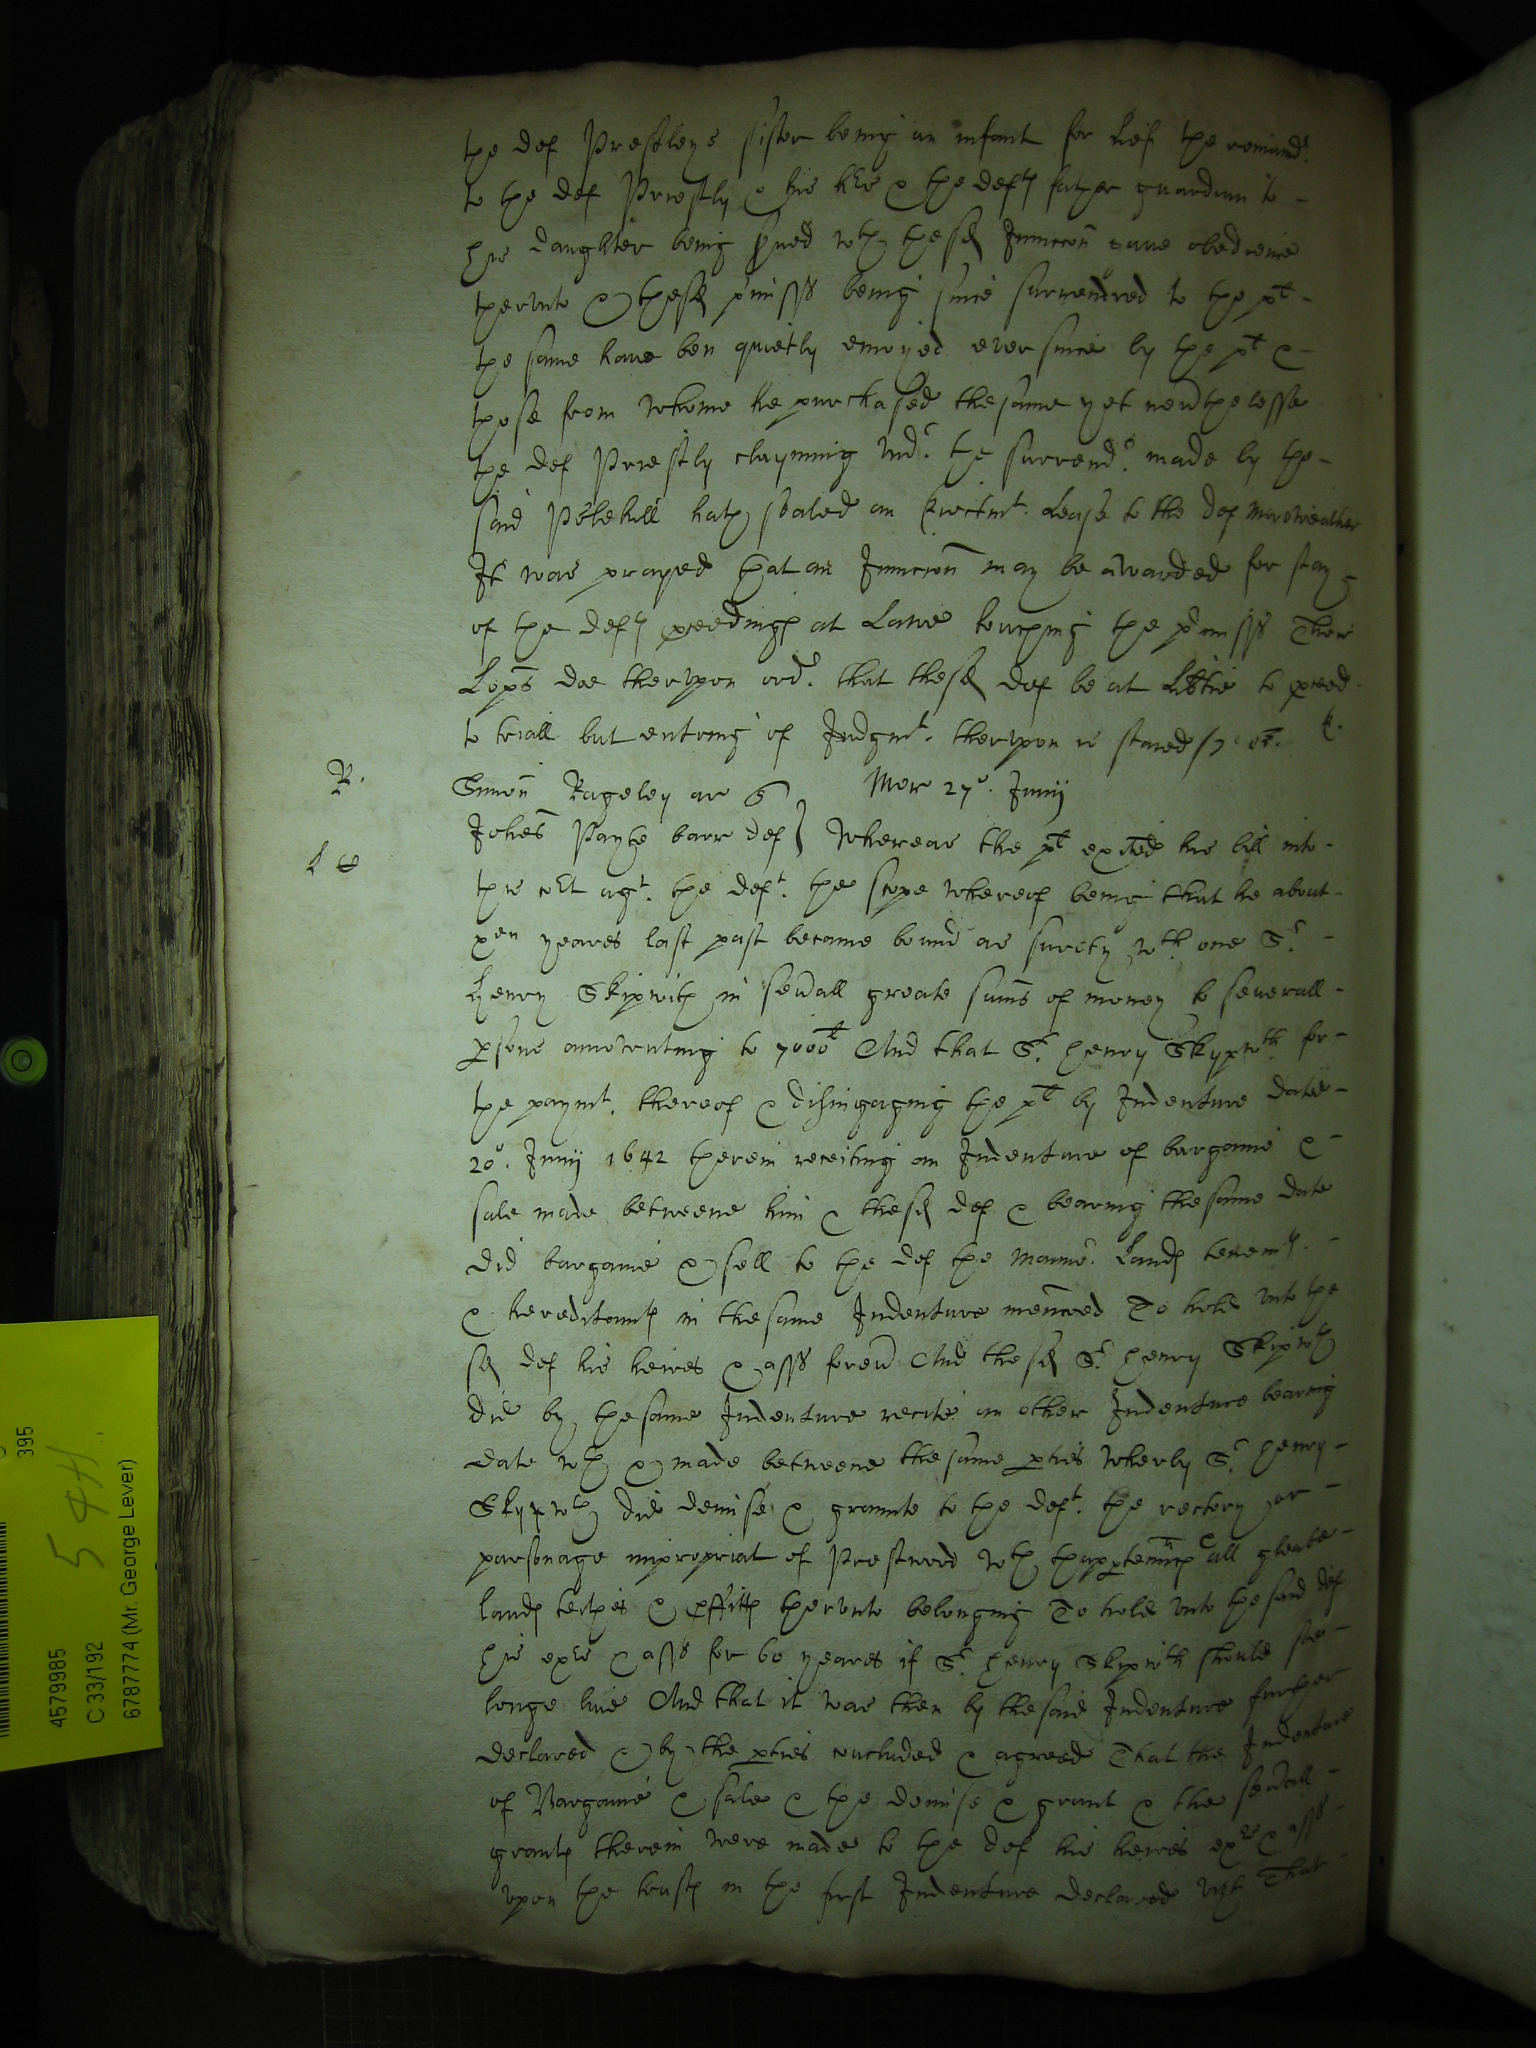 the def Prestleys sister being an infant for lief the remaind:r
to the def Priestly & his h:rs & the def:ts father guardian to -
his daughter being s:rved w:th the sd Iniuncc:on gave obedience
therunto & the sd p:rmiss:s being since surrendred to the p:lt -
the same have ben quietly enioyed ever since by the p:lt & -
those from whome he purchased the same yet nev:rthelesse
the def Priestly clayming und:r the surrend:r made by the -
said Pelehill hath sealed an Eiectm:t Lease to the def Mereweather
It was prayed that an Iniuncc:on may be awarded for stay -
of the def:ts p:ceedings at Lawe touching the p:rmiss:s Their
Lo:pps doe therupon ord:r that the sd def be at Lib:tie to p:ceed -
to triall but entring of Iudgm:t therupon is staied
R. Simon Rageley ar q Mer 27:o Junij
Johes Payne barr def } Whereas the p:lt exited his bill into -
L
this c:rt ag:t the def:t the scope whereof being that he about -
xen yeares last past became bound as surety w:th one S:r -
Henry Skipwith in sev:rall greate sumes of money to severall -
p:sons amounting to 7000:l And that S:r Henry Skypw:th for -
the paym:t thereof & disingaging the p:lt by Indenture dated -
20:o Junij 1642 therein reciting an Indenture of bargaine & -
sale made betweene him & the sd def & bearing the same date
did bargaine & sell to the def the Mannor Lands tenem:ts -
& hereditam:ts in the same Indenture menc:oned To hold unto the
sd def his heires & ass:s forev:r And the sd S:r Henry Skipw:th
did by the same Indenture recite an other Indenture bearing
date w:th & made betweene the same p:ties wherby S:r Henry -
Skypw:th did demise & graunte to the def:t the rectory or -
parsonage impropriat of Prestwod w:th thapp:tenn:cs all gleabe -
lands teithes & p:ffitts therunto belonging To hold unto the said def
his ex:rs & ass:s for 60 yeares if S:r Henry Skipw:th should soe -
longe live And that it was then by the said Indenture further
declared & by the p:ties concluded & agreed That the Indenture
of Bargaine & sale & the demise & grant & the sev:rall -
grants therein were made to the def his heires ex:rs & ass:s -
upon the trusts in the first Indenture declared vizt That -
4579985
C 33/192
6787774 (Mr. George Lever)
395
54H